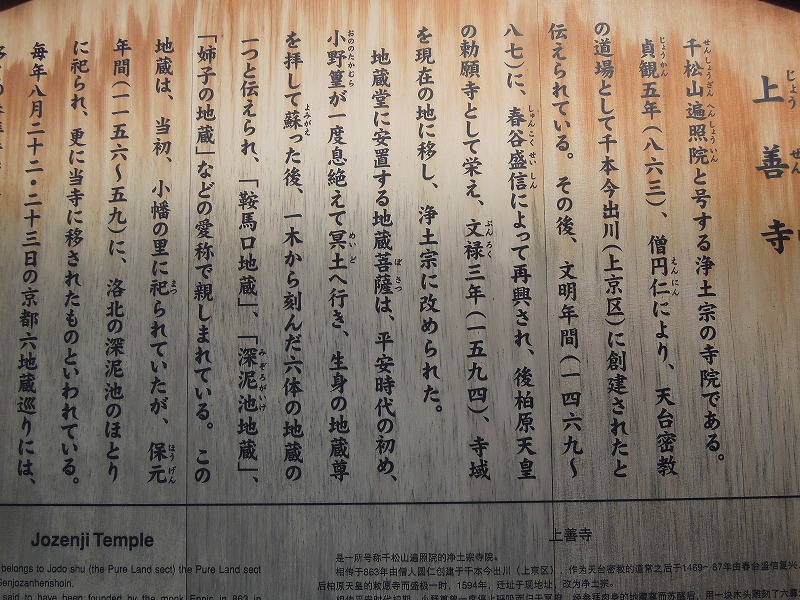 上善寺
じょうぜん
千松山遍照院と号する浄土宗の寺院である。
せんしょうざんへんしょういん
貞観五年(八六三)、僧円仁により、天台密教
じょうがん えんにん
の道場として千本今出川(上京区)に創建されたと
伝えられている。その後、文明年間(一四六九〜
八七)に、春谷盛信によって再興され、後柏原天皇
しゅんこくせいしん
の勅願寺として栄え、文禄三年(一五九四)、寺域
ぶんろく
を現在の地に移し、浄土宗に改められた。
地蔵堂に安置する地蔵菩薩は、平安時代の初め、
ぼさつ
小野篁が一度息絶えて冥土へ行き、生身の地蔵尊
おののたかむら めいど
を拝して蘇った後、一木から刻んだ六体の地蔵の
よみがえ
一つと伝えられ、「鞍馬口地蔵」、「深泥池地蔵」、
みぞろがいけ
「姉子の地蔵」などの愛称で親しまれている。この
地蔵は、当初、小幡の里に祀られていたが、保元
まつ ほうげん
年間(一一五六〜五九)に、洛北の深泥池のほとり
に祀られ、更に当寺に移されたものといわれている。
毎年八月二十二・二十三日の京都六地蔵巡りには、
Jozenji Temple
belongs to Jodo shu (the Pure Land sect) the Pure Land sect
Senjozanhenshoin.
said to have been founded by the monk Ennin in 863 in
上善寺
是一所号称千松山遍照院的净土宗寺院。
相传于863年由僧人圆仁创建于千本今出川(上京区)，作为天台密教的道场之后于1469~87年由春台盛信复兴
后柏原天皇的敕愿寺而盛极一时，1594年，迁址于现地址，改为净土宗。